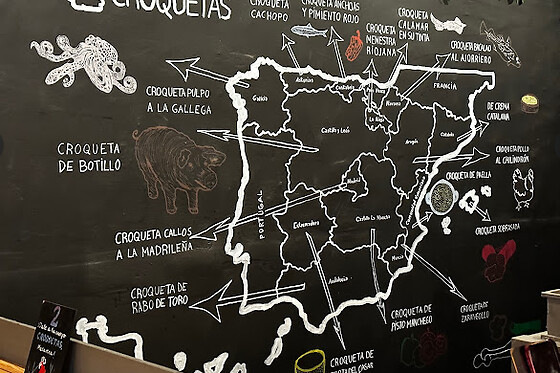 CROQUETAS
CROQUETA
CACHOPO
CROQUETA ANCHOAS
Y PIMIENTO ROJO
CROQUETA
MENESTRA
RIOJANA
CROQUETA
CALAMAR
EN SU TINTA
CROQUETA BACALAO
AL AJOARRIERO
CROQUETA PULPO
A LA GALLEGA
CROQUETA
DE BOTILLO
CROQUETA CALLOS
A LA MADRILEÑA
CROQUETA DE
RABO DE TORO
DE CREMA
CATALANA
CROQUETA POLLO
AL CHILINDRÓN
CROQUETA DE PAELLA
CROQUETA SOBRASADA
CROQUETA DE
ZARANGOLLO
CROQUETA DE
PISTO MANCHEGO
CROQUETA DE
TORTA DEL CASAR
FRANCIA
PORTUGAL
Galicia
Asturias
Cantabria
País Vasco
Navarra
La Rioja
Castilla y León
Aragón
Cataluña
Madrid
Extremadura
Castilla La Mancha
Murcia
Andalucía
2
CROQUETAS